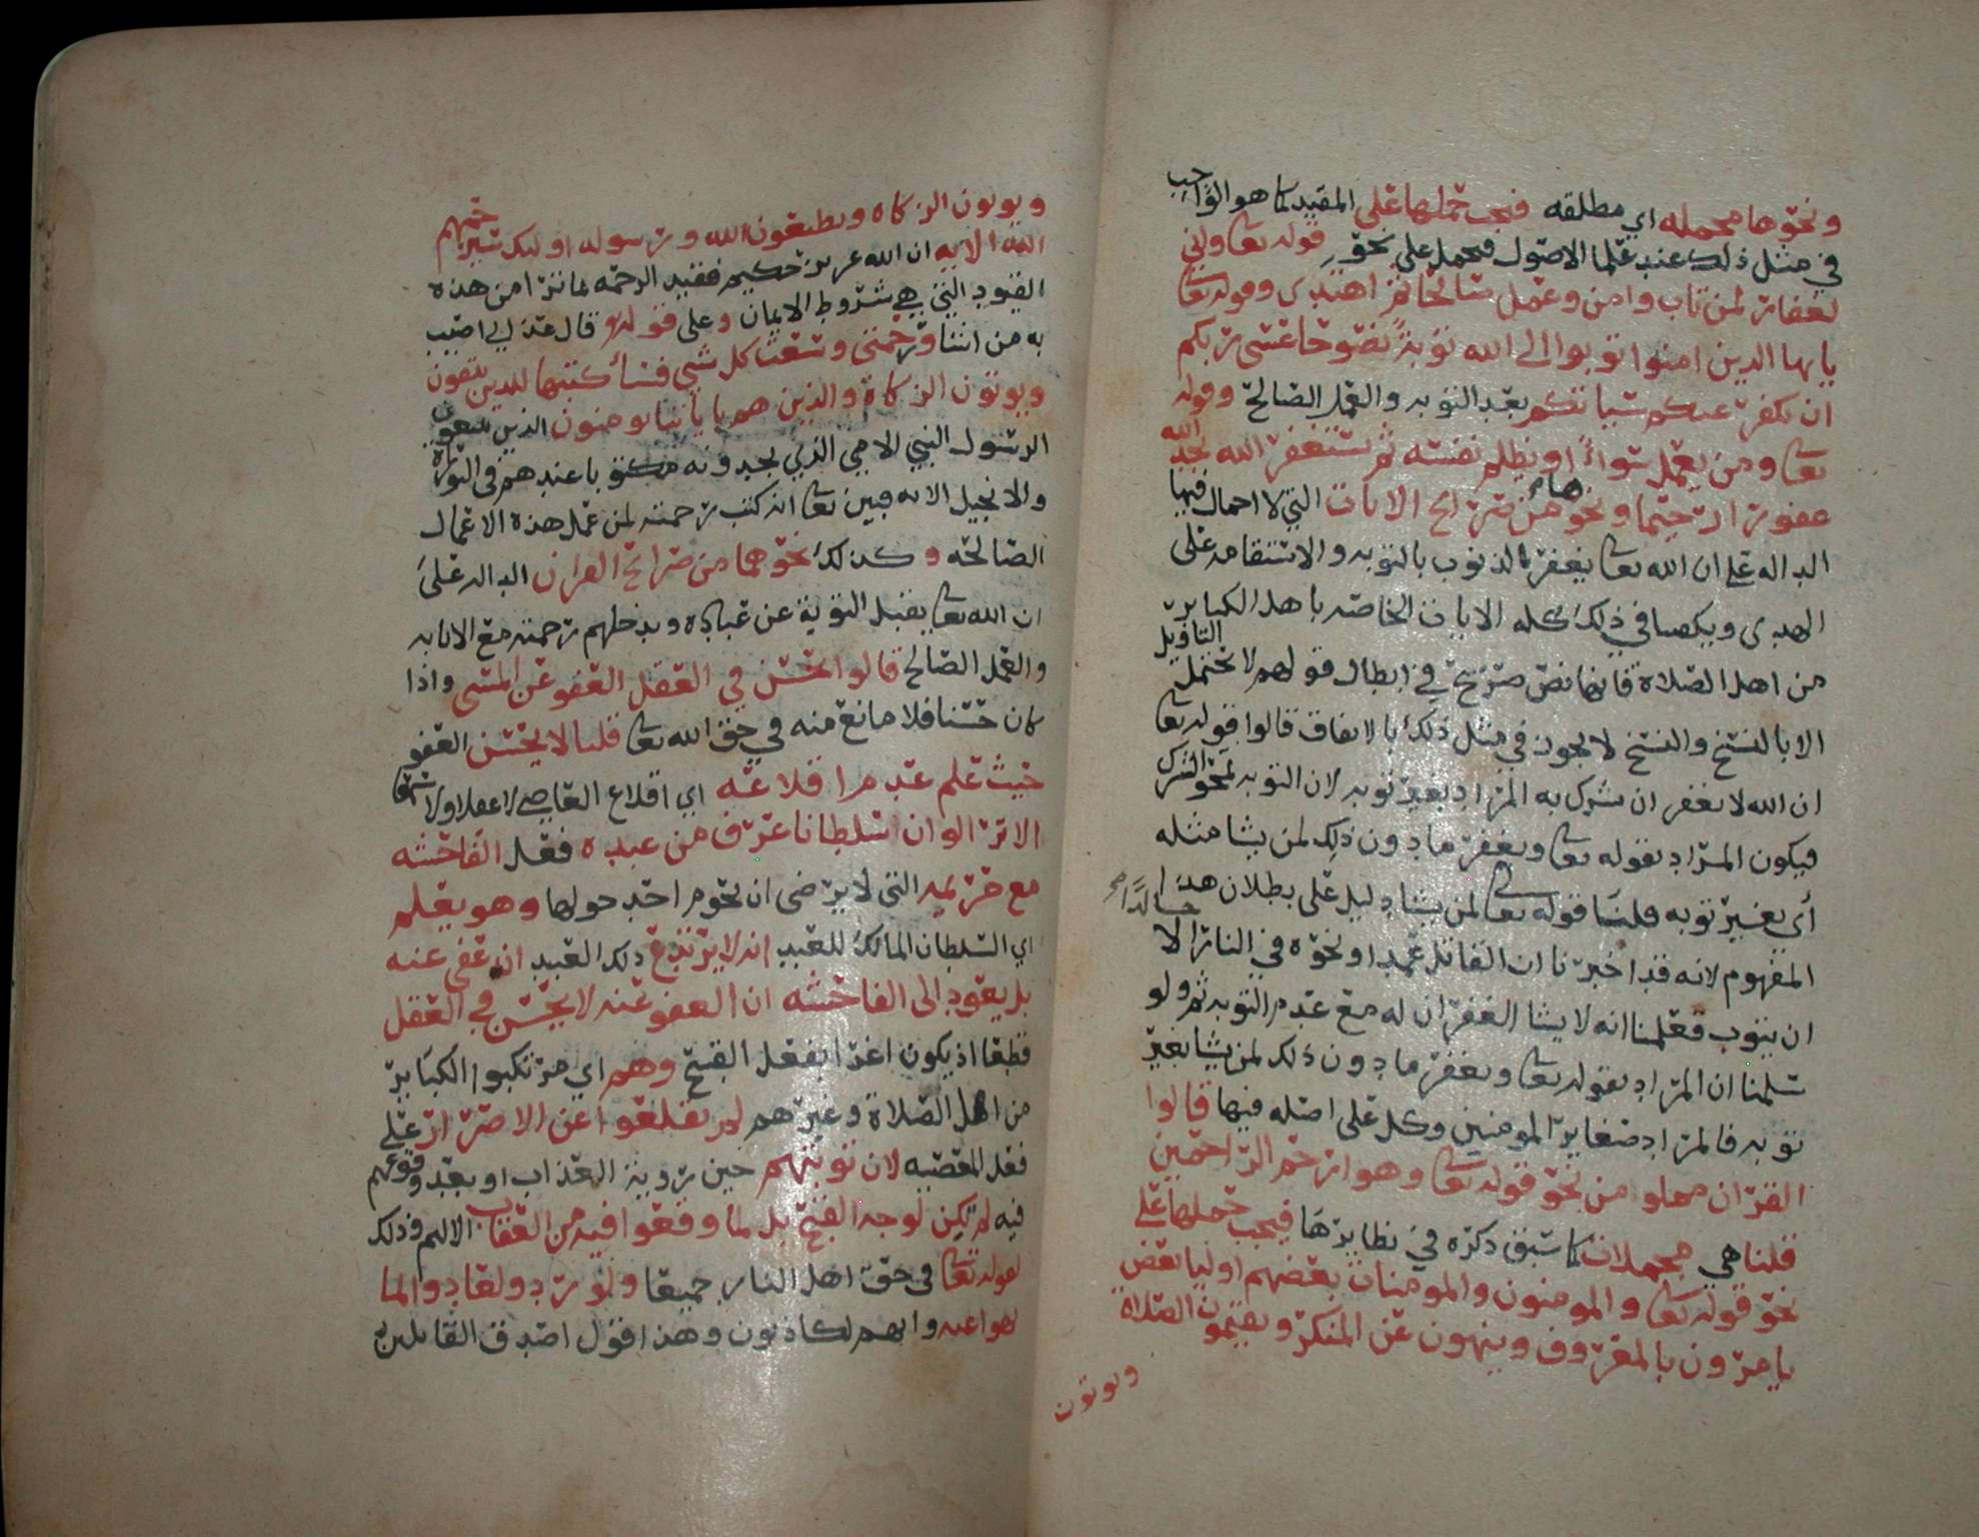 ونحوها مجمله اي مطلقه فيجب حملها على المقيد كما هو الواجب
في مثل ذلك عند علما الاصول فيحمل على نحو قوله تعا واني
لغفار لمن تاب وامن وعمل صالحا ثم اهتدى وقوله تعا
يايها الدين امنوا توبوا الى الله توبة نصوحا عسى ربكم
ان يكفر عنكم سياتكم بعد التوبه والعمل الصالح وقوله
تعا ومن يعمل سوأ او يظلم نفسه ثم يستغفر الله يجد الله
غفورا رحيما ونحوهما من صرائح الايات التي لا احمال فيها
الداله على ان الله تعا يغفر الذنوب بالتوبه والاستقامه على
الهدى ويكصا في ذلك كله الايات الخاصه باهل الكباير
من اهل الصلاة فانها نص صريح في ابطال قولهم لا تحتمل التاويل
الا بالنسخ والنسخ لا يجوز في مثل ذلك بالاتفاق قالوا قوله تعا
ان الله لا يغفر ان يشرك به المراد بغير توبه لان التوبه تمحو الشرك
فيكون المراد بقوله تعا ويغفر ما دون ذلك لمن يشا مثله
أي بغير توبه قلنا قوله تعالى لمن يشا دليل على بطلان هذا
المفهوم لانه قد اخبرنا ان القاتل عمدا ونحوه في النار خالدًا الا
ان يتوب فعلمنا انه لا يشا الغفران له مع عدم التوبه ثم ولو
سلمنا ان المراد بقوله تعا ويغفر ما دون ذلك لمن يشا بغير
توبه فالمراد صغاير المومنين وكل على اصله فيها قالوا
القران مملوا من نحو قوله تعا وهو ارحم الراحمين
قلنا هي مجملات كما سبق ذكره في نظايرها فيجب حملها على
نحو قوله تعا والمومنون والمومنات بعضهم اوليا بعض
يامرون بالمعروف وينهون عن المنكر ويقيمون الصلاة
ويوتون
ويوتون الزكاه ويطيعون الله ورسوله اوليك سيرحمهم
الله الايه ان الله عزيز حكيم فقيد الرحمه بما ترا من هذه
القيود التي هي شروط الايمان وعلى قوله قال عذابي اصيب
به من اشا ورحمتي وسعت كل شي فسأكتبها للدين يتقون
ويوتون الزكاة والذين هم باياتنا يومنون الذين يتبعون
الرسول النبي الامي الذي يجدونه مكتوبا عندهم في التوراة
والانجيل الايه فبين تعا انه كتب رحمته لمن عمل هذه الاعمال
الصالحه وكذلك نحوهما من صرائح القران الداله على
ان الله تعا يقبل التوبة عن عباده ويدخلهم رحمته مع الانابه
والعمل الصالح قالوا يحسن في العقل العفو عن المسى واذا
كان حسنا فلا مانع منه في حق الله تعا قلنا لا يحسن العفو
حيث علم عدم اقلاعه اي اقلاع العاصي لا عقلا ولا سمعا
الا ترا لو ان سلطانا عرف من عبده فعل الفاحشه
مع حريمه التي لا يرضى ان يحوم احد حولها وهو يعلم
اي السلطان المالك للعبد انه لا يرتدع ذلك العبد ان عفي عنه
بل يعود الى الفاحشه ان العفو عنه لا يحسن في العقل
قطعا اذ يكون اغرا بفعل القبيح وهم اي مرتكبوا الكباير
من اهل الصلاة وغيرهم لم يقلعوا عن الاصرار على
فعل المعصيه لان توبتهم حين روية العذاب او بعد وقوعهم
فيه لم تكن لوجه القبح بل لما وقعوا فيه من العقاب الاليم وذلك
لقوله تعا في حق اهل النار جميعا ولو ردوا لعادوا لما
نهوا عنه وانهم لكاذبون وهذا قول اصدق القايلين